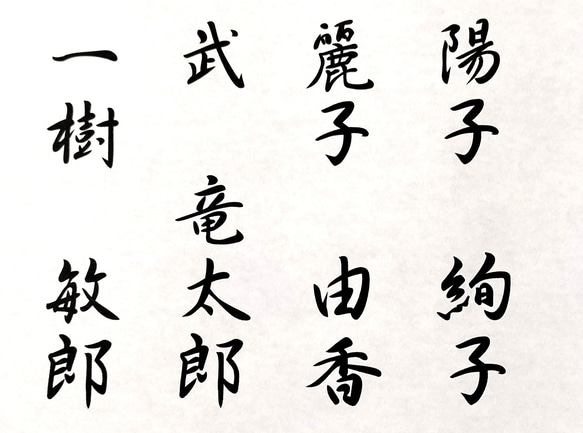 陽子
絢子
麗子
由香
武
竜太郎
一樹
敏郎